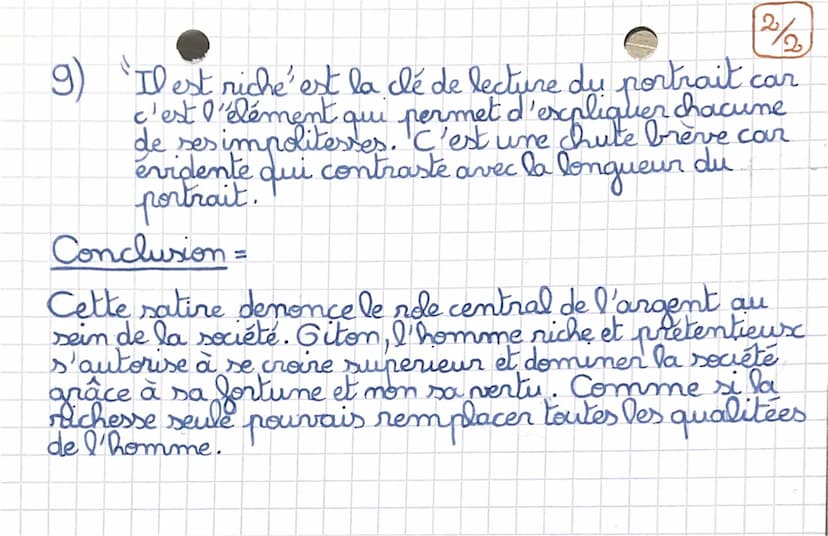 2/2
9) "Il est riche" est la clé de lecture du portrait car
c'est l'élément qui permet d'expliquer chacune
de ses impolitesses. C'est une chute brève car
évidente qui contraste avec la longueur du
portrait.
Conclusion =
Cette satire denonce le role central de l'argent au
sein de la société. Giton, l'homme riche et prétentieux
s'autorise à se croire superieur et dominer la société
grâce à sa fortune et non sa vertu. Comme si la
richesse seule pouvais remplacer toutes les qualitées
de l'homme.